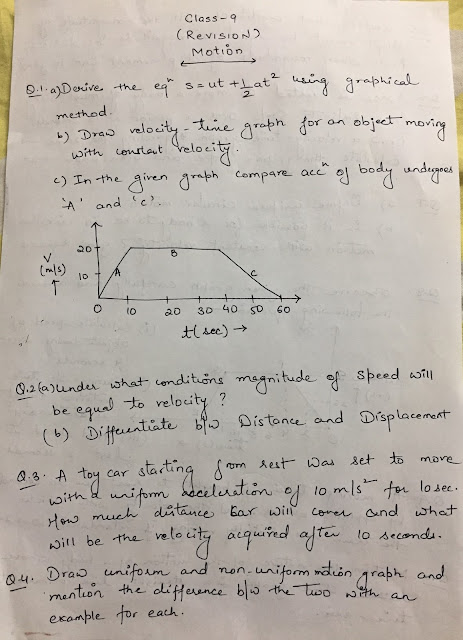 Class-9
(REVISION)
MOTION
Q.1.a) Derive the eqn s = ut + 1/2 at² using graphical
method.
b) Draw velocity-time graph for an object moving
with constant velocity.
c) In the given graph compare accn of body undergoes
'A' and 'C'.
V
(m/s)
↑
20
10
A
B
C
0 10 20 30 40 50 60
t(sec) →
Q.2(a) Under what conditions magnitude of speed will
be equal to velocity?
(b) Differentiate b/w Distance and Displacement
Q.3. A toy car starting from rest was set to move
with a uniform acceleration of 10 m/s² for 10 sec.
How much distance car will cover and what
will be the velocity acquired after 10 seconds.
Q4. Draw uniform and non-uniform motion graph and
mention the difference b/w the two with an
example for each.